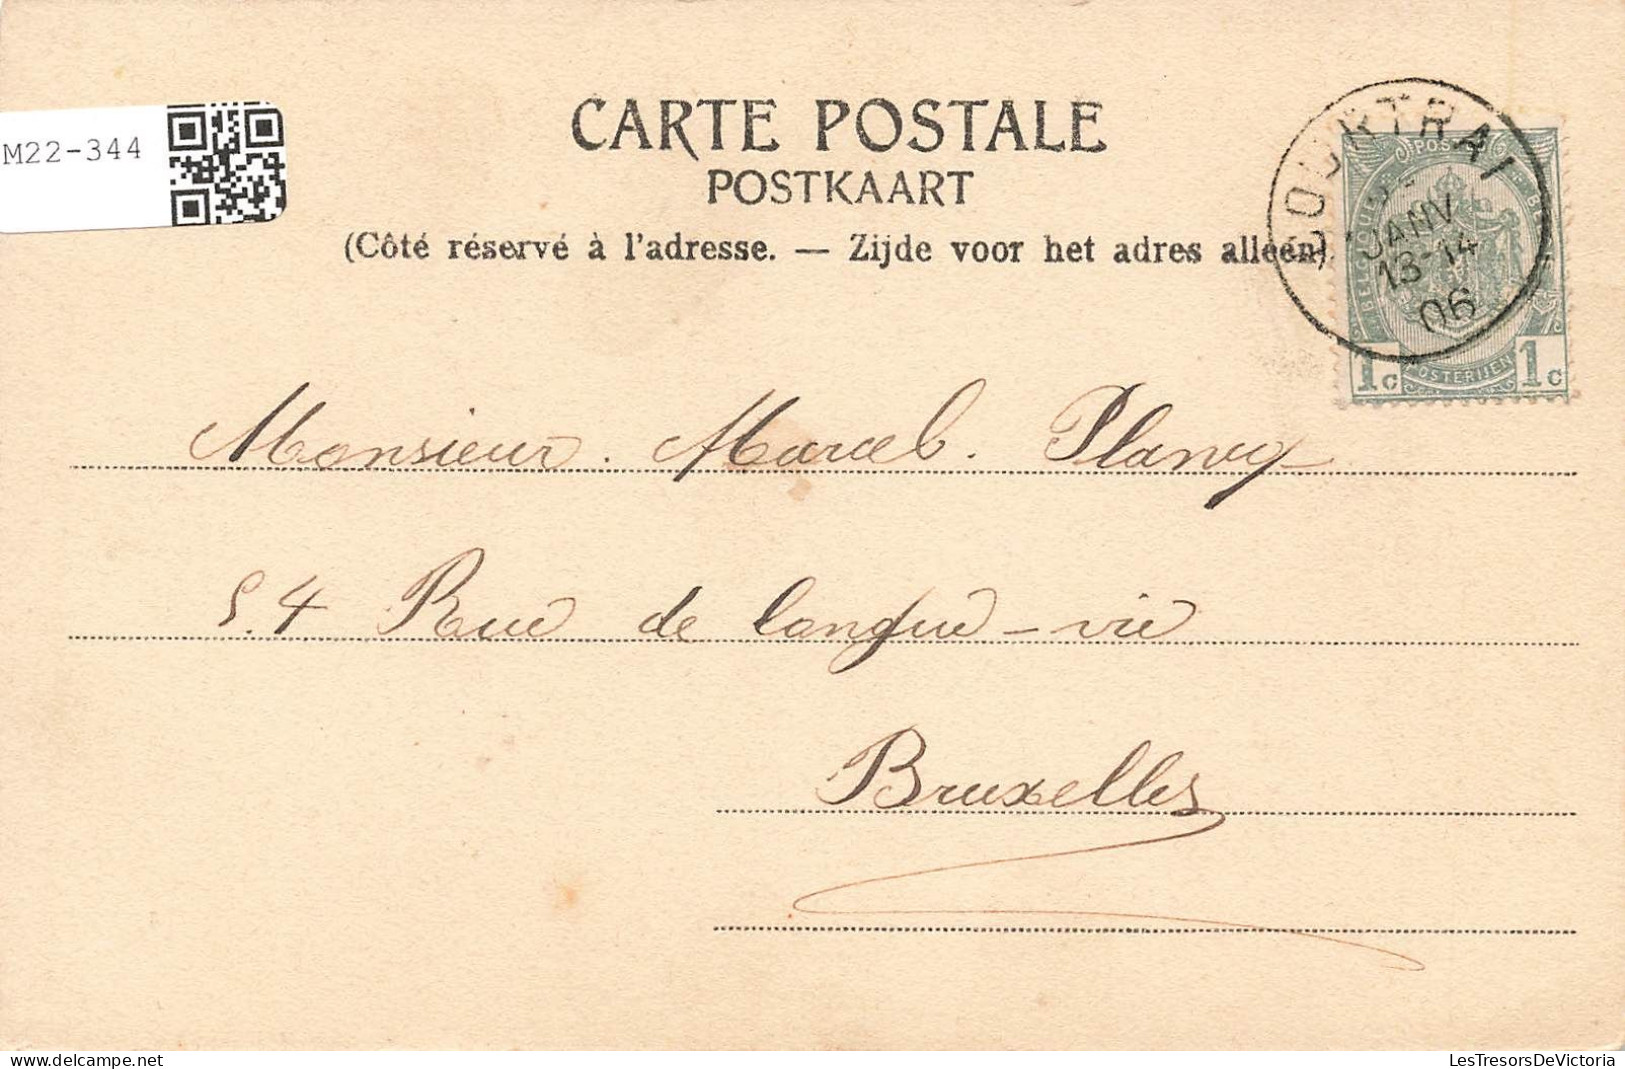 CARTE POSTALE
M22-344
POSTKAART
(Côté réservé à l'adresse. — Zijde voor het adres alleen)
COURTRAI
JANV
13-14
06
POSTES
BELGIQUE
BELGIË
1c POSTERIJEN 1c
Monsieur. Marcel. Plancy
54 Rue de langue-vie
Bruxelles
M22-344
LesTresorsDeVictoria
delcampe.net